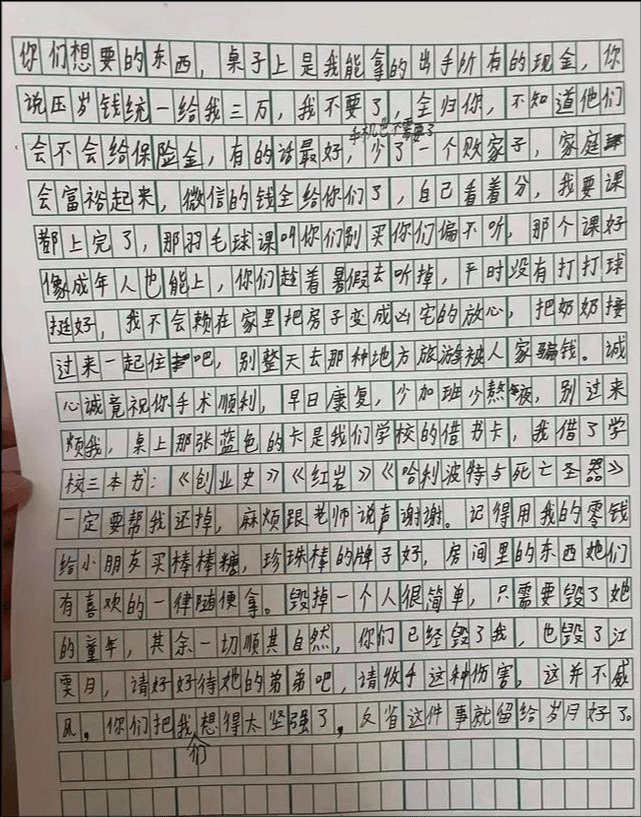 你们想要的东西，桌子上是我能拿的出手所有的现金，你
说压岁钱统一给我三万，我不要了，全归你，不知道他们
手机也不需要了
会不会给保险金，有的话最好，少了一个败家子，家庭
会富裕起来，微信的钱全给你们了，自己看着分，我要课
都上完了，那羽毛球课叫你们别买你们偏不听，那个课好
像成年人也能上，你们趁着暑假去听掉，平时没有打打球
挺好，我不会赖在家里把房子变成凶宅的放心，把奶奶接
过来一起住吧，别整天去那种地方旅游被人家骗钱。诚
心诚竟祝你手术顺利，早日康复，少加班少熬夜，别过来
烦我，桌上那张蓝色的卡是我们学校的借书卡，我借了学
校三本书：《创业史》《红岩》《哈利波特与死亡圣器》
一定要帮我还掉，麻烦跟老师说声谢谢。记得用我的零钱
给小朋友买棒棒糖，珍珠棒的牌子好，房间里的东西她们
有喜欢的一律随便拿。毁掉一个人很简单，只需要毁了她
的童年，其余一切顺其自然，你们已经毁了我，也毁了江
雯月，请好好待她的弟弟吧，请收手这种伤害。这并不威
风。你们把我们想得太坚强了，反省这件事就留给岁月好了。